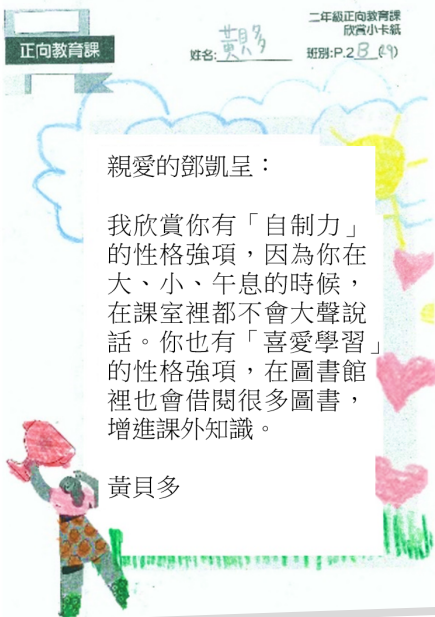 正向教育課
二年級正向教育課
欣賞小卡紙
姓名: 黃貝多
班別:P.2 B (19)
親愛的鄧凱呈：
我欣賞你有「自制力」
的性格強項，因為你在
大、小、午息的時候，
在課室裡都不會大聲說
話。你也有「喜愛學習」
的性格強項，在圖書館
裡也會借閱很多圖書，
增進課外知識。
黃貝多